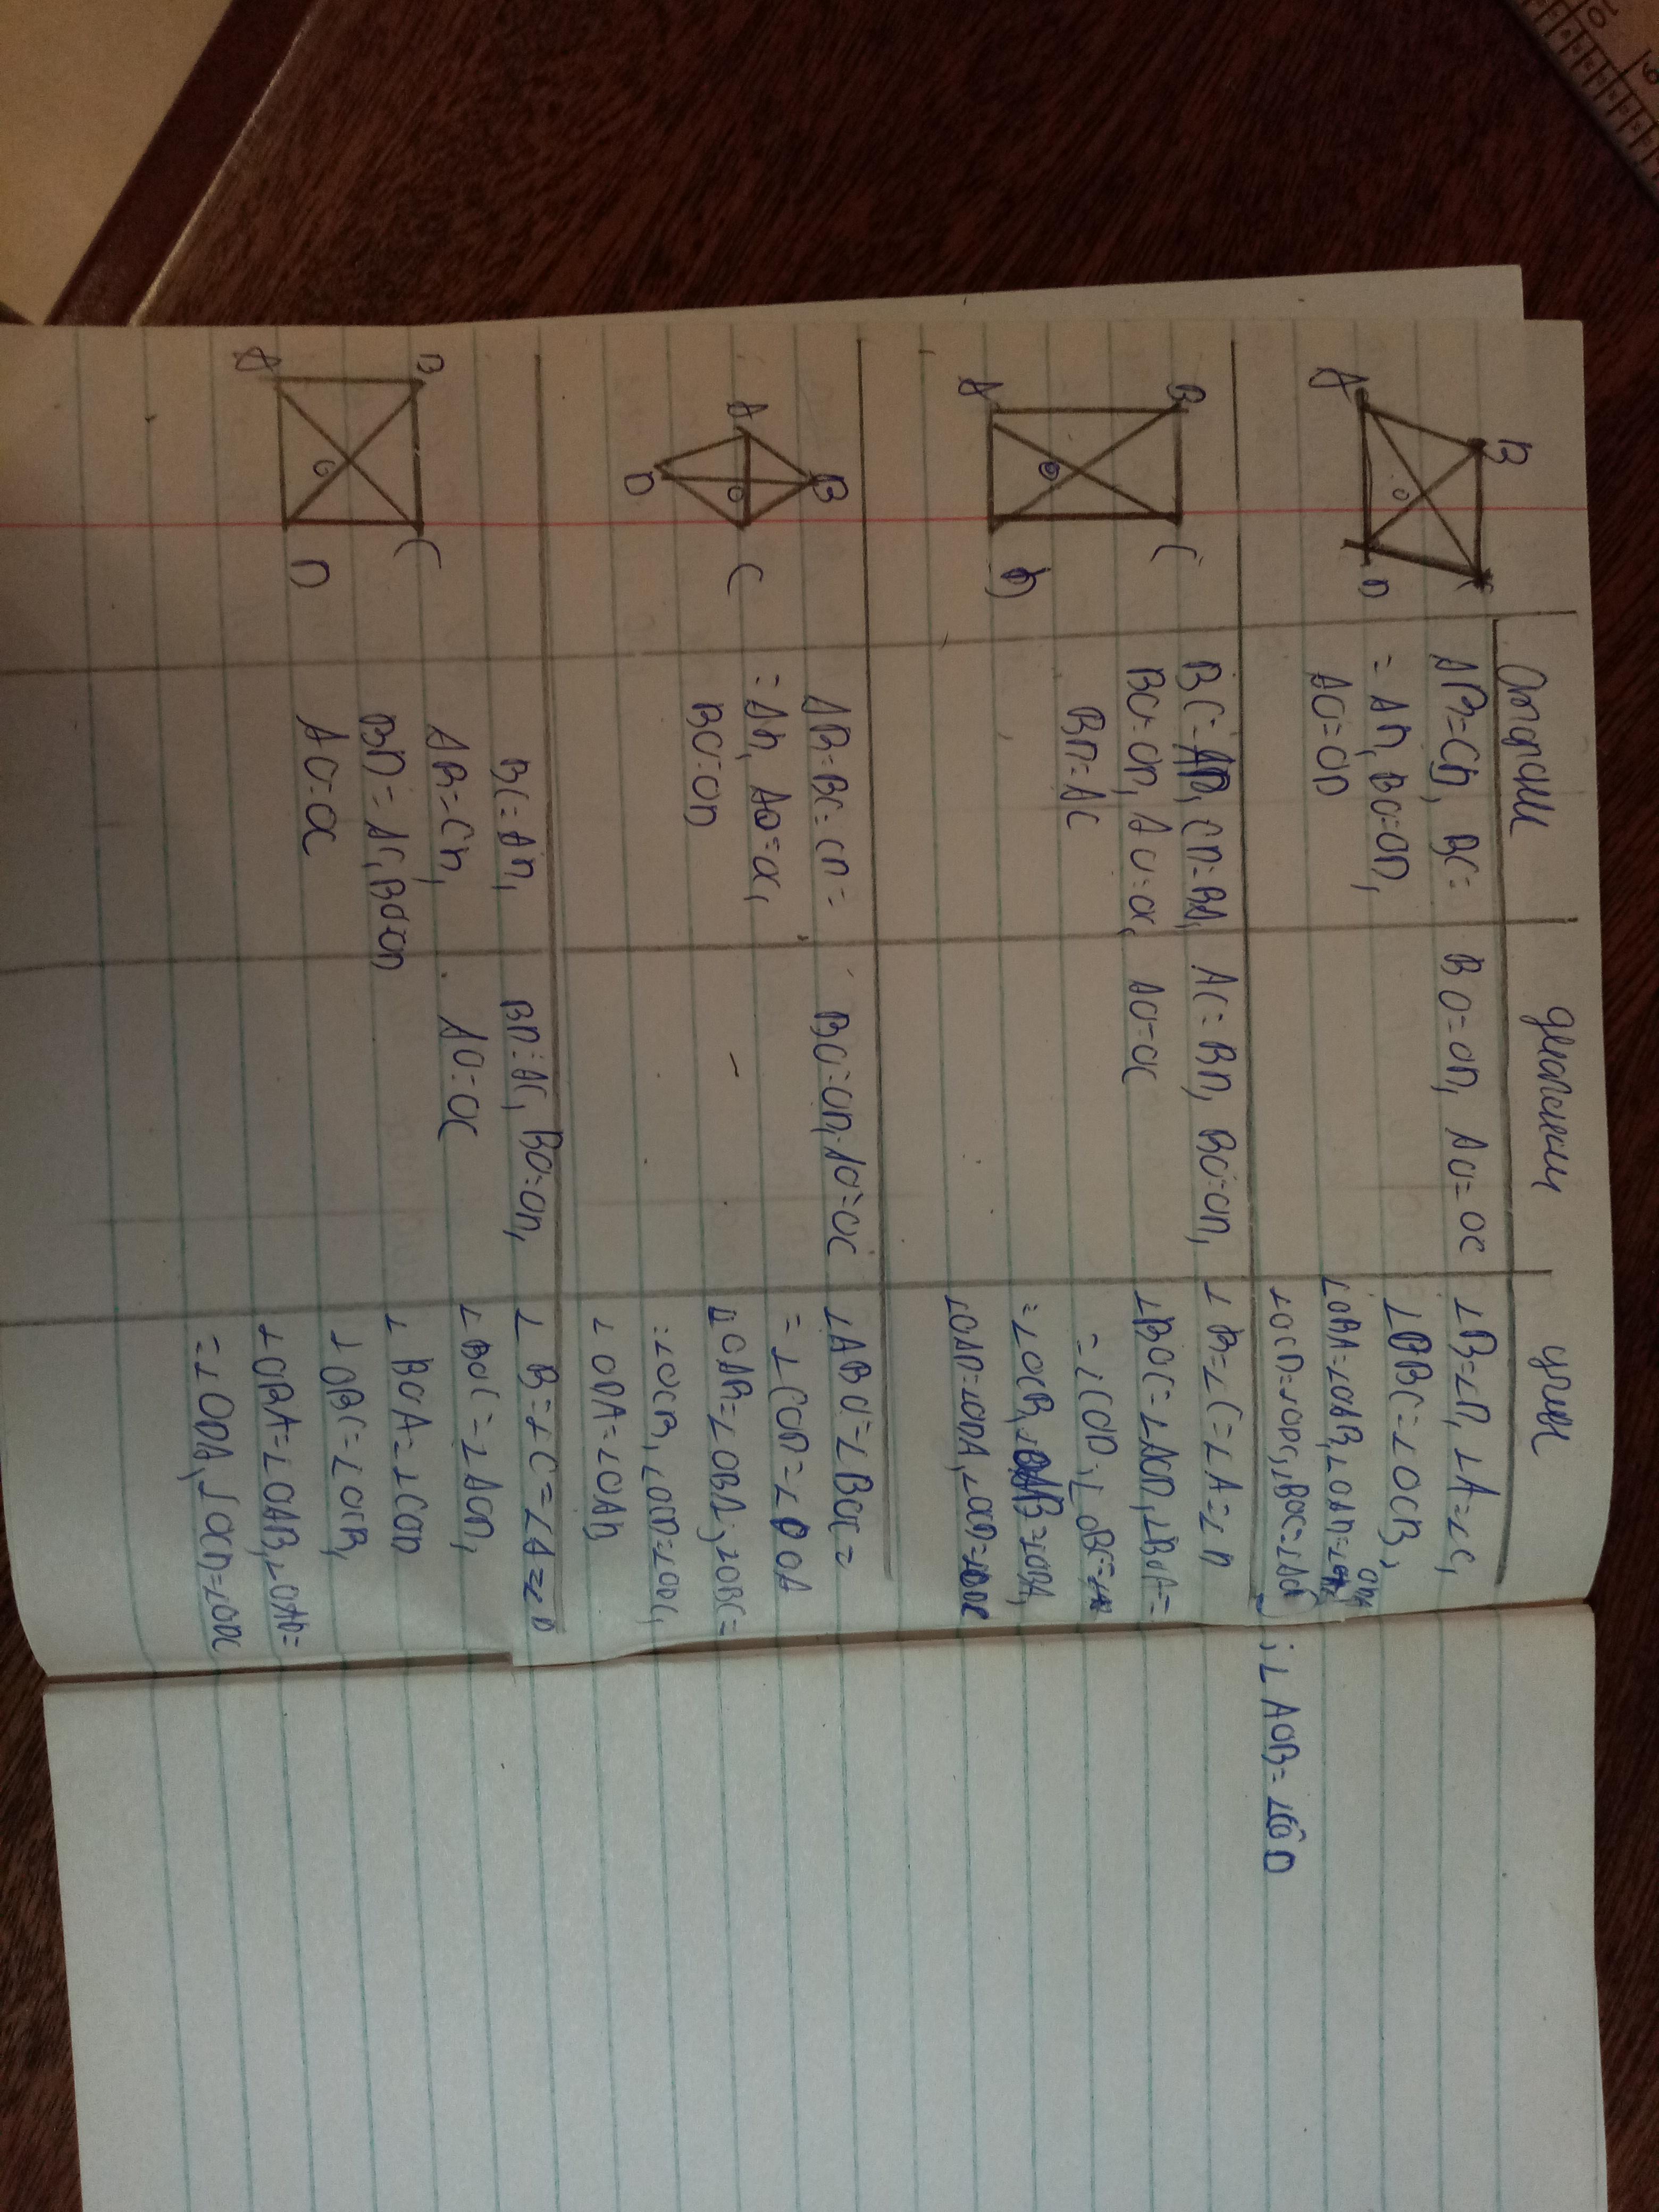 Стороны диагонали углы
A B C D O
AB=CD, BC=
=AD, BO=OD,
AO=OD
BO=OD, AO=OC
∠B=∠D, ∠A=∠C,
∠OBC=∠OCB,
∠OBA=∠OAB, ∠OAD=
∠OCD=∠ODC, ∠BOC=
; ∠AOB=
A B C D O
BC=AD, CD=BA,
BO=OD, AO=OC,
BD=AC
AC=BD, BO=OD,
AO=OC
∠B=∠C=∠A=∠D
∠BOC=∠AOD, ∠BOA=
=∠COD, ∠OBC=
=∠OCB, ∠OAB=∠OBA,
∠OAD=∠ODA, ∠OCD=∠ODC
A B C D O
AB=BC=CD=
=AD, AO=OC,
BO=OD
BO=OD, AO=OC
∠ABO=∠BOC=
=∠COD=∠DOA
∠OAB=∠OBA, ∠OBC=
=∠OCB, ∠OCD=∠ODC,
∠ODA=∠OAD
A B C D O
BC=AD,
AB=CD,
BD=AC, BO=OD
AO=OC
BD=AC, BO=OD,
AO=OC
∠B=∠C=∠A=∠D
∠BOC=∠AOD,
∠BOA=∠COD
∠OBC=∠OCB,
∠OBA=∠OAB, ∠OAD=
=∠ODA, ∠OCD=∠ODC
10
9